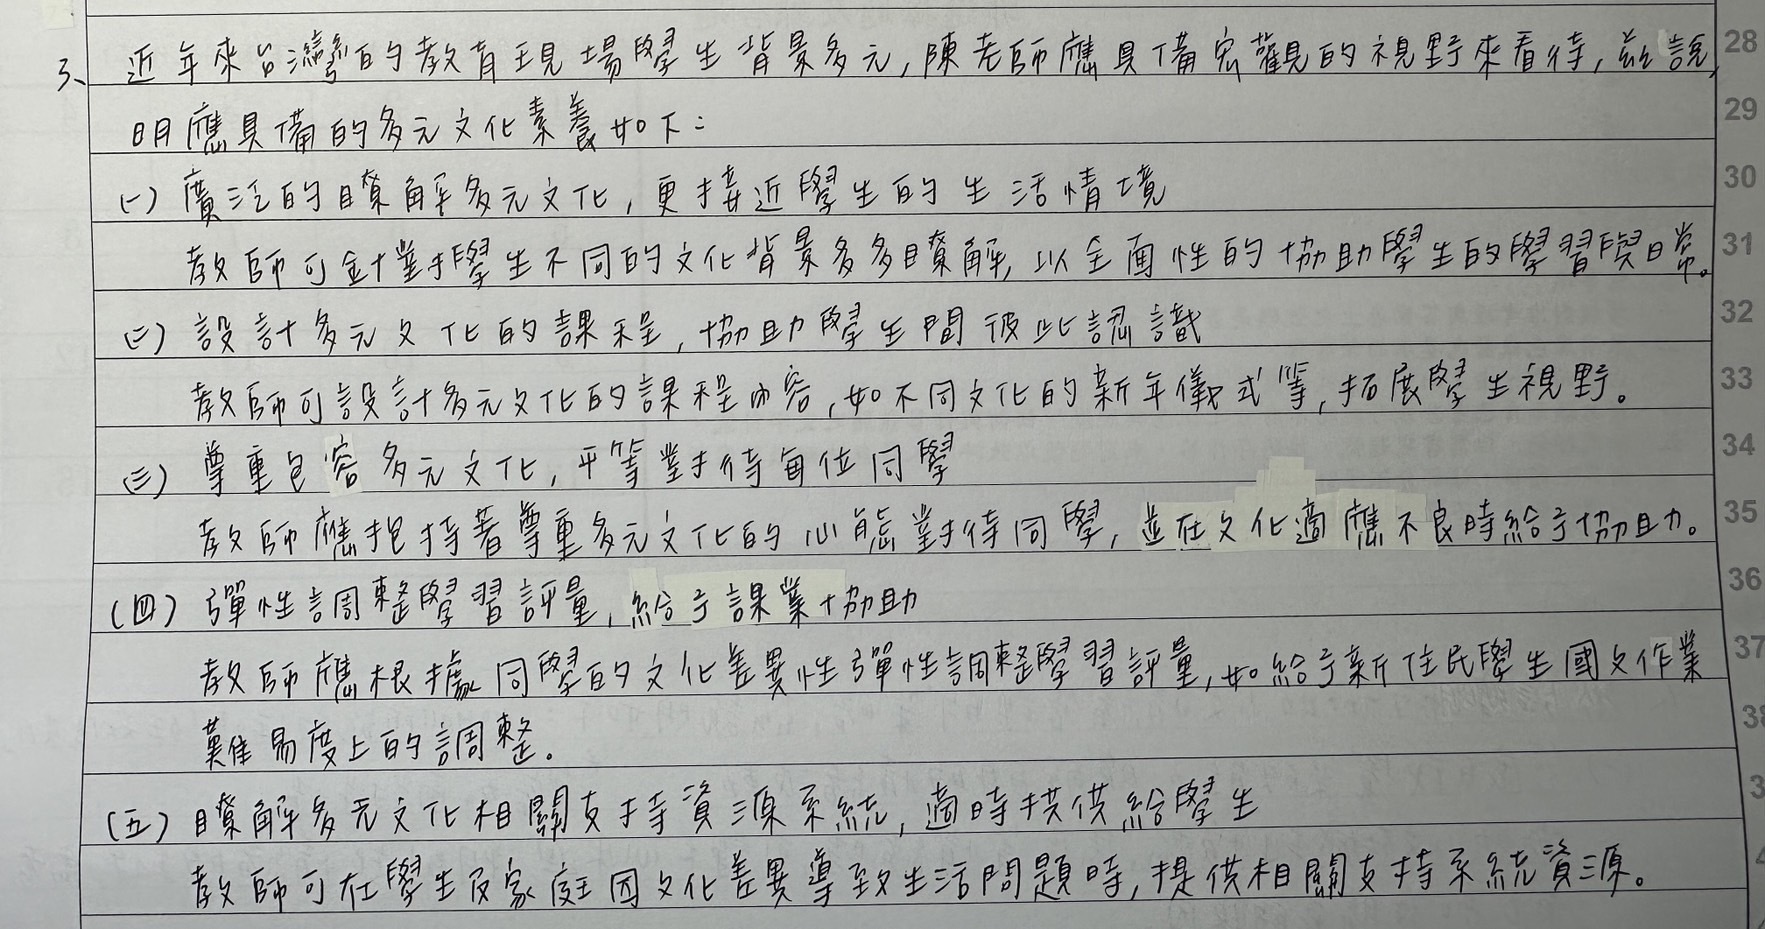 3、近年來台灣的教育現場學生背景多元,陳老師應具備宏觀的視野來看待,茲說
明應具備的多元文化素養如下:
(一) 廣泛的瞭解多元文化,更接近學生的生活情境
教師可針對學生不同的文化背景多多瞭解,以全面性的協助學生的學習與日常。
(二) 設計多元文化的課程,協助學生間彼此認識
教師可設計多元文化的課程內容,如不同文化的新年儀式等,拓展學生視野。
(三) 尊重包容多元文化,平等對待每位同學
教師應抱持著尊重多元文化的心態對待同學,並在文化適應不良時給予協助。
(四) 彈性調整學習評量,給予課業協助
教師應根據同學的文化差異性彈性調整學習評量,如給予新住民學生國文作業
難易度上的調整。
(五) 瞭解多元文化相關支持資源系統,適時提供給學生
教師可在學生及家庭因文化差異導致生活問題時,提供相關支持系統資源。
28
29
30
31
32
33
34
35
36
37
38